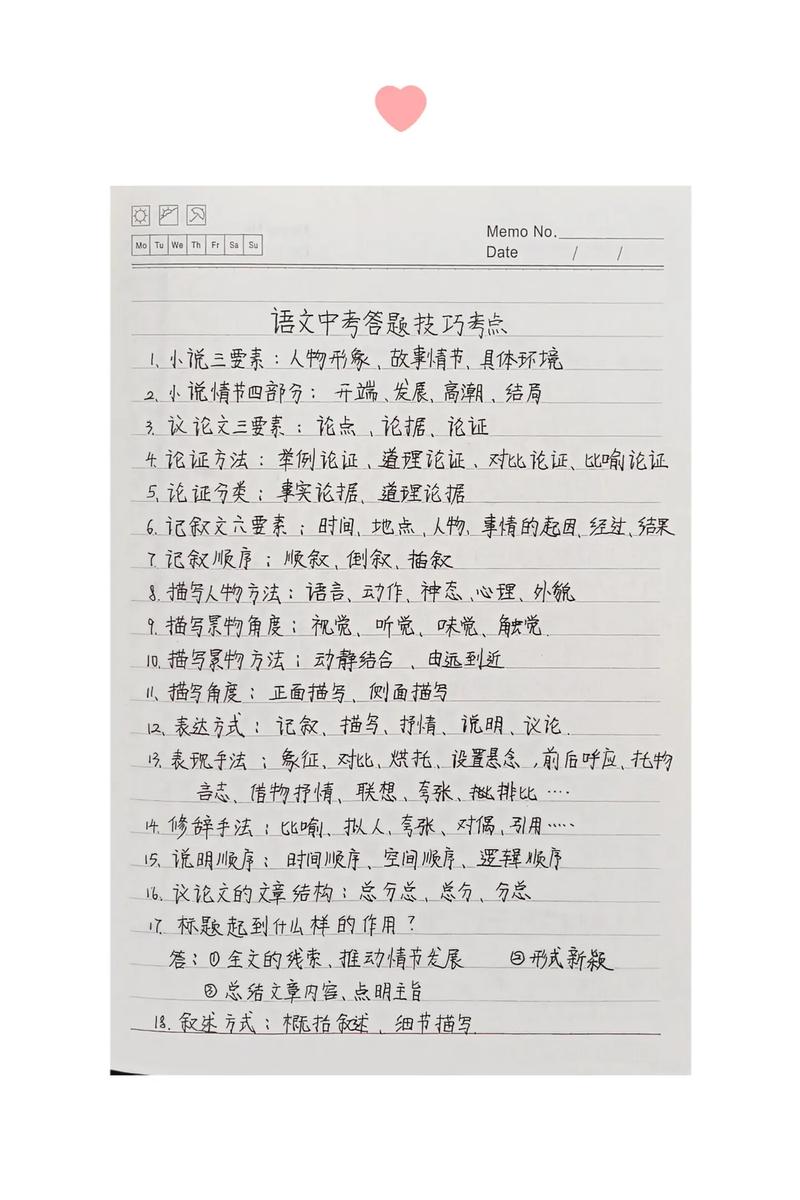 Memo No.
Mo Tu We Th Fr Sa Su
Date / /
语文中考答题技巧考点
1. 小说三要素：人物形象、故事情节、具体环境
2. 小说情节四部分：开端、发展、高潮、结局
3. 议论文三要素：论点、论据、论证
4. 论证方法：举例论证、道理论证、对比论证、比喻论证
5. 论证分类：事实论据、道理论据
6. 记叙文六要素：时间、地点、人物、事情的起因、经过、结果
7. 记叙顺序：顺叙、倒叙、插叙
8. 描写人物方法：语言、动作、神态、心理、外貌
9. 描写景物角度：视觉、听觉、味觉、触觉.
10. 描写景物方法：动静结合、由远到近
11. 描写角度：正面描写、侧面描写
12. 表达方式：记叙、描写、抒情、说明、议论.
13. 表现手法：象征、对比、烘托、设置悬念、前后呼应、托物
言志、借物抒情、联想、夸张、排比····
14. 修辞手法：比喻、拟人、夸张、对偶、引用·····
15. 说明顺序：时间顺序、空间顺序、逻辑顺序
16. 议论文的文章结构：总分总、总分、分总
17. 标题起到什么样的作用？
答：①全文的线索、推动情节发展 ②形式新颖
③总结文章内容、点明主旨
18. 叙述方式：概括叙述、细节描写.